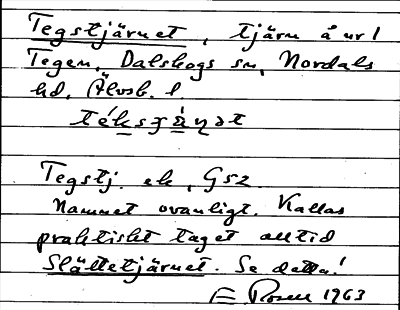 Tegstjärnet, tjärn å nr 1
Tegen, Dalskogs sn, Nordals
hd, Älvsb. l.
Tegstj. ek, G52
Namnet ovanligt. Kallas
praktiskt taget alltid
Slättetjärnet. Se detta!
E Rosen 1963